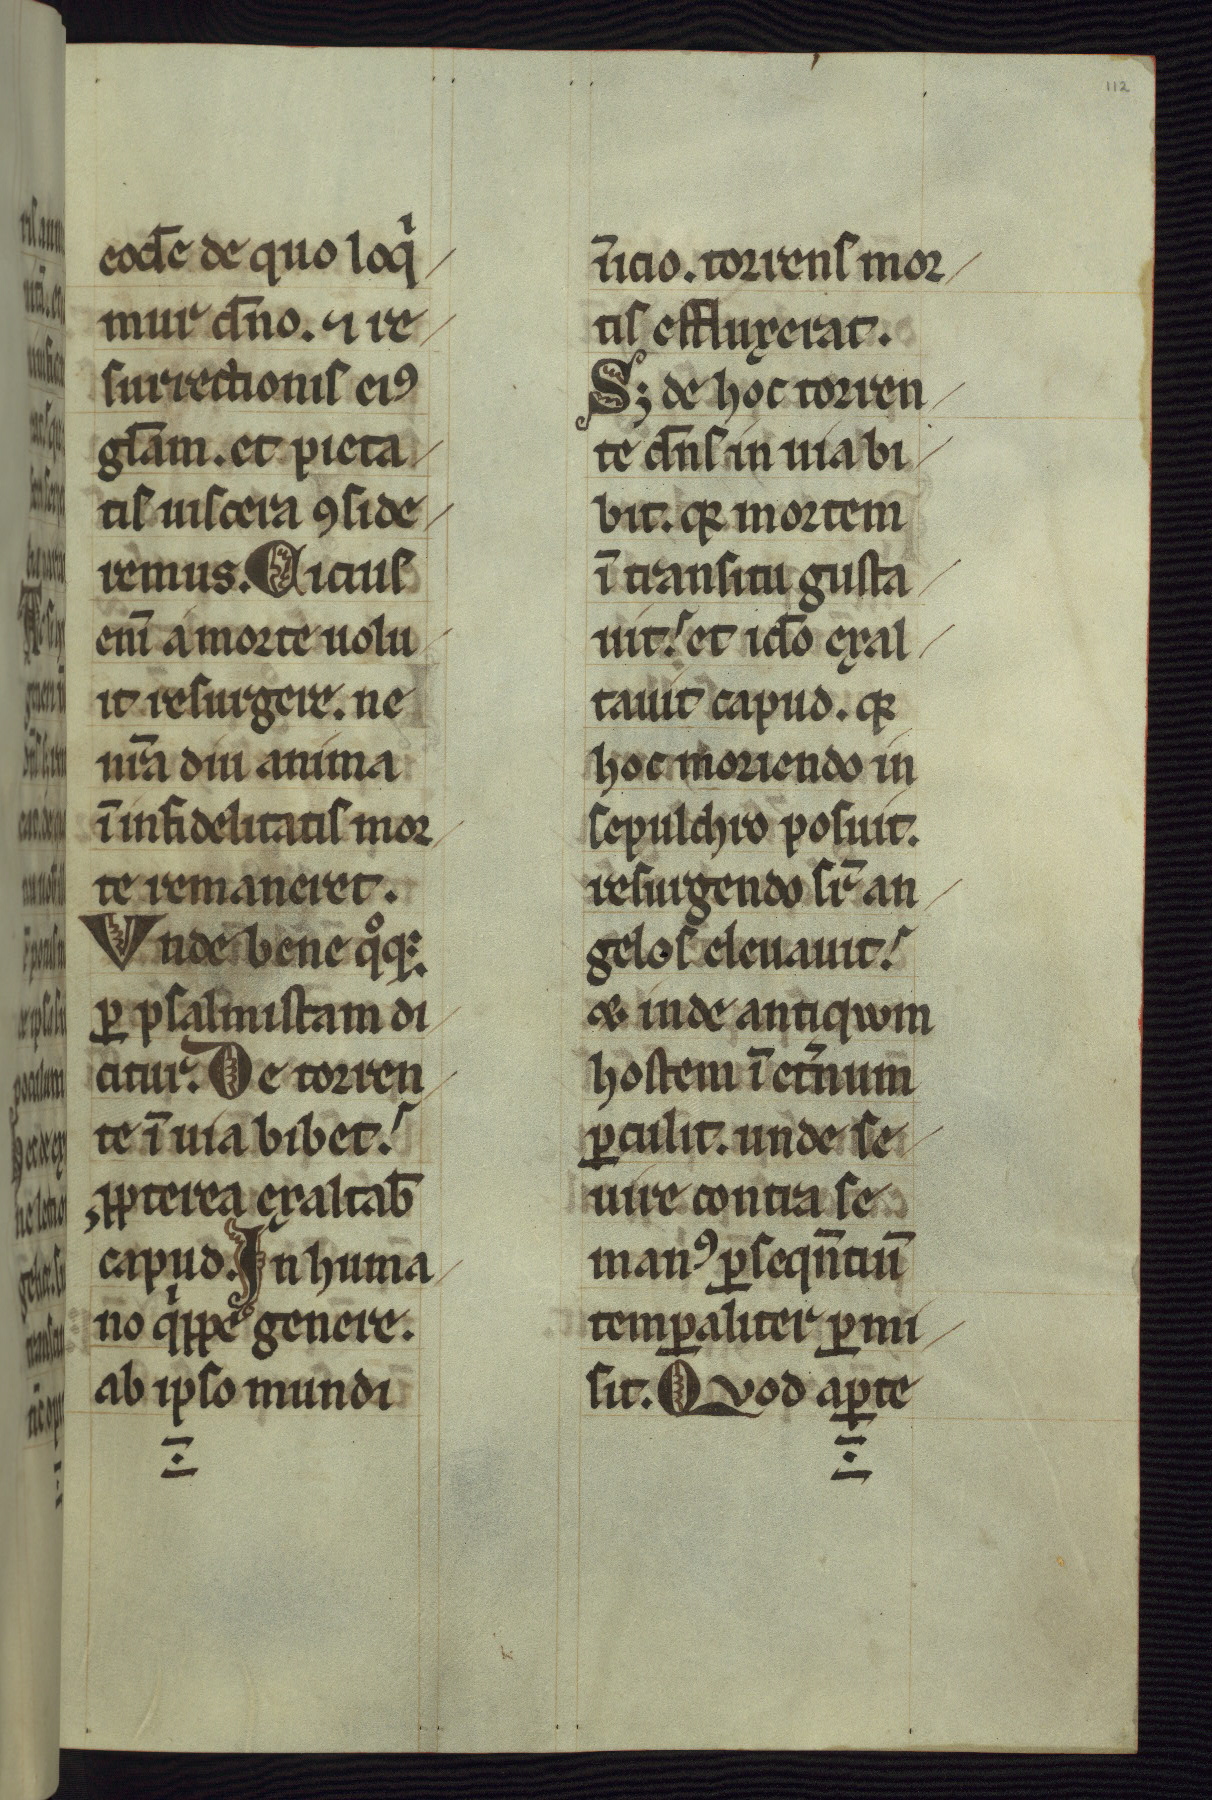 112
eodē de quo loqͥ
mur dn̄o. ⁊ re
surrectionis eiꝰ
gl̄am. et pieta
tis uiscera ꝯside
remus. Cicius
enī a morte uolu
it resurgere. ne
nr̄a diu anima
ī infidelitatis mor
te remaneret.
Vnde bene qͦꝙ
ꝑ psalmistam di
citur. De torren
te ī uia bibet.
ꝓpterea exaltab̄
capud. In huma
no qͥppe genere.
ab ipso mundi
īnicio. torrens mor
tis effluxerat.
Sꝫ de hoc torren
te dn̄s in uia bi
bit. qꝛ mortem
ī transitu gusta
uit. et ido̅ exal
tauit capud. qꝛ
hoc moriendo in
sepulchro posuit.
resurgendo sr̄ an
gelos eleuauit.
⁊ inde antiquum
hostem ī et̄num
ꝑculit. unde se
uire contra se
manꝰ ꝑseqn̄ciū
temꝑaliter ꝑmi
sit. Quod aꝑte